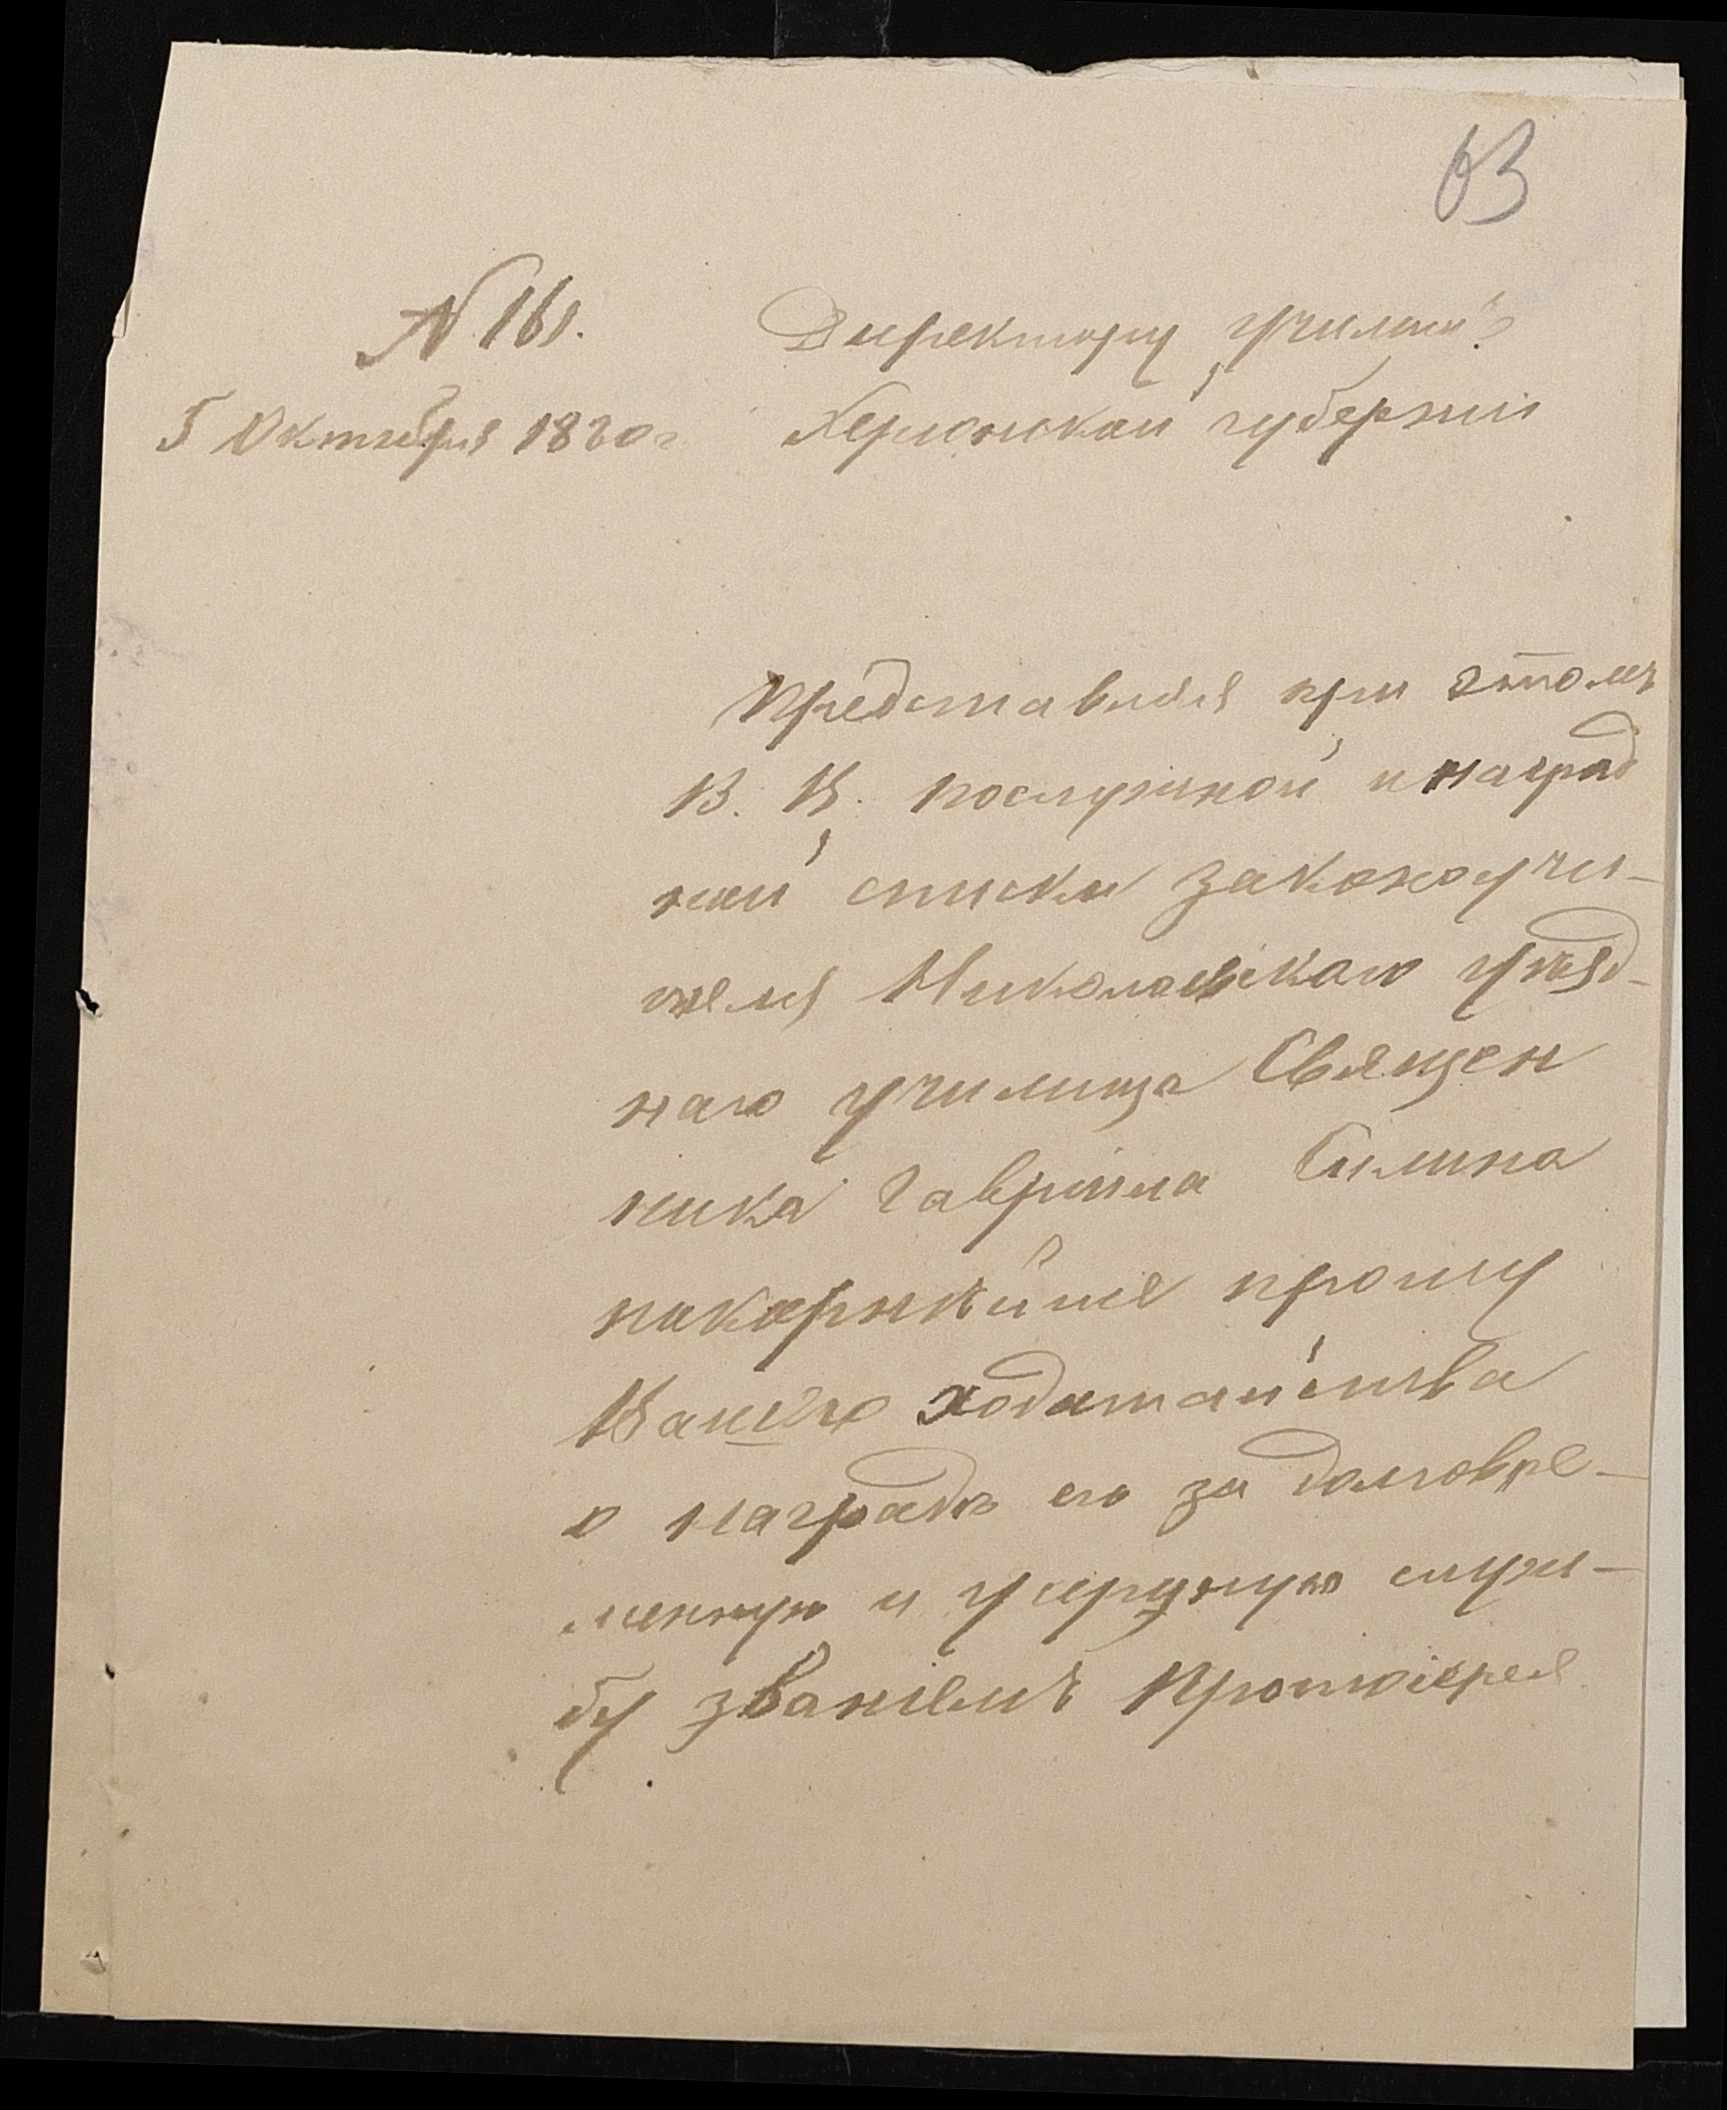 63
N 161.
Директору училищъ
5 Октября 1880 г
Херсонской губерніи
Представляя при этомъ
В. В. послужной и наград
ной списки законоучи-
теля Николаевскаго уѣзд-
наго училища Священ
ника Гавріила Силина
покорнѣйше прошу
Вашего ходатайства
о наградѣ его за долговре-
менную и усердную служ-
бу званіемъ Протоіерея